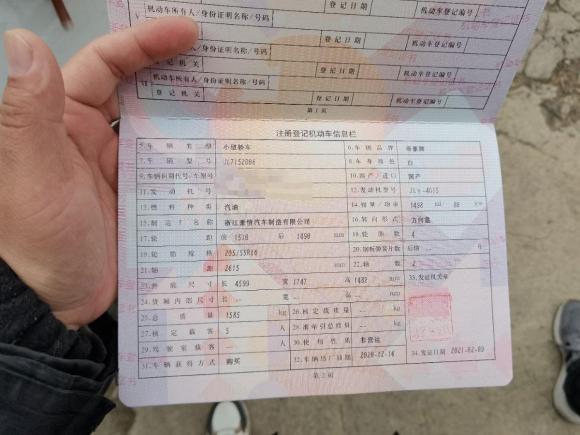 机动车所有人/身份证明名称/号码
登记机关 登记日期 机动车登记编号
机动车所有人/身份证明名称/号码
登记机关 登记日期 机动车登记编号
第1页
注册登记机动车信息栏
5.车辆类型 小型轿车 6.车辆品牌
7.车辆型号 8.车身颜色 白
9.车辆识别代号/车架号 10.国产/进口 国产
11.发动机号 12.发动机型号
13.燃料种类 汽油 14.排量/功率 1498 ml
15.制造厂名称 浙江豪情汽车制造有限公司 16.转向形式 方向盘
17.轮距 前 1518 后 1498 mm 18.轮胎数 4
19.轮胎规格 205/55R16 20.钢板弹簧片数 后轴 片
21.轴距 2615 mm 22.轴数 2
23.外廓尺寸 长 4599 宽 1747 高 1482 mm 33.发证机关章
24.货厢内部尺寸 长 宽 高 mm
25.总质量 1585 kg 26.核定载质量 kg
27.核定载客 5 人 28.准牵引总质量 kg
29.驾驶室载客 人 30.使用性质 非营运
31.车辆获得方式 购买 32.车辆出厂日期 2020-12-14 34.发证日期 2021-02-09
第2页